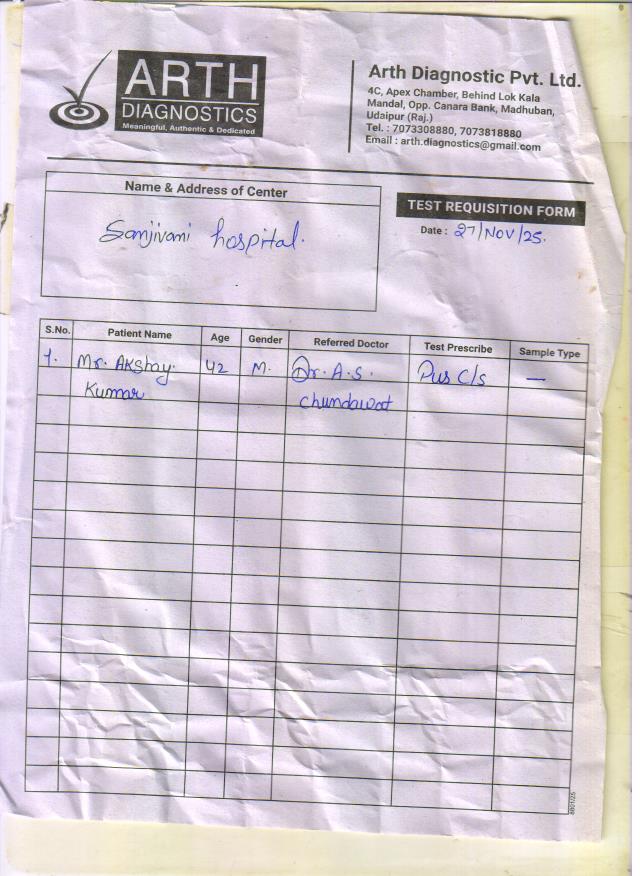 ARTH
DIAGNOSTICS
Meaningful, Authentic & Dedicated
Arth Diagnostic Pvt. Ltd.
4C, Apex Chamber, Behind Lok Kala
Mandal, Opp. Canara Bank, Madhuban,
Udaipur (Raj.)
Tel. : 7073308880, 7073818880
Email : arth.diagnostics@gmail.com
Name & Address of Center
Sanjivani hospital.
TEST REQUISITION FORM
Date : 27/Nov/25.
S.No. Patient Name Age Gender Referred Doctor Test Prescribe Sample Type
1. Mr. Akshay. 42 M. Dr. A.S. Pus C/s —
Kumar chundawat